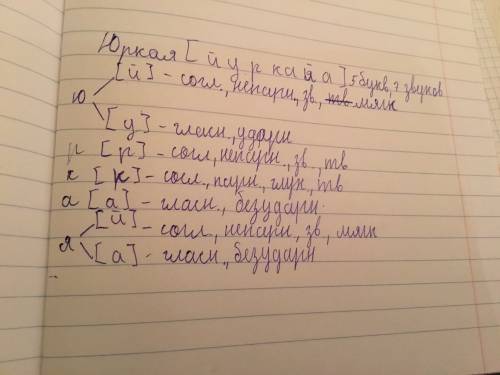 Юркая [й у р к а й а] 5 букв, 7 звуков
[й] - согл, непарн, зв, тв мягк
ю
[у] - гласн, ударн
р [р] - согл, непарн, зв, тв
к [к] - согл, парн, глух, тв
а [а] - гласн, безударн.
[й] - согл, непарн, зв, мягк
я
[а] - гласн, безударн